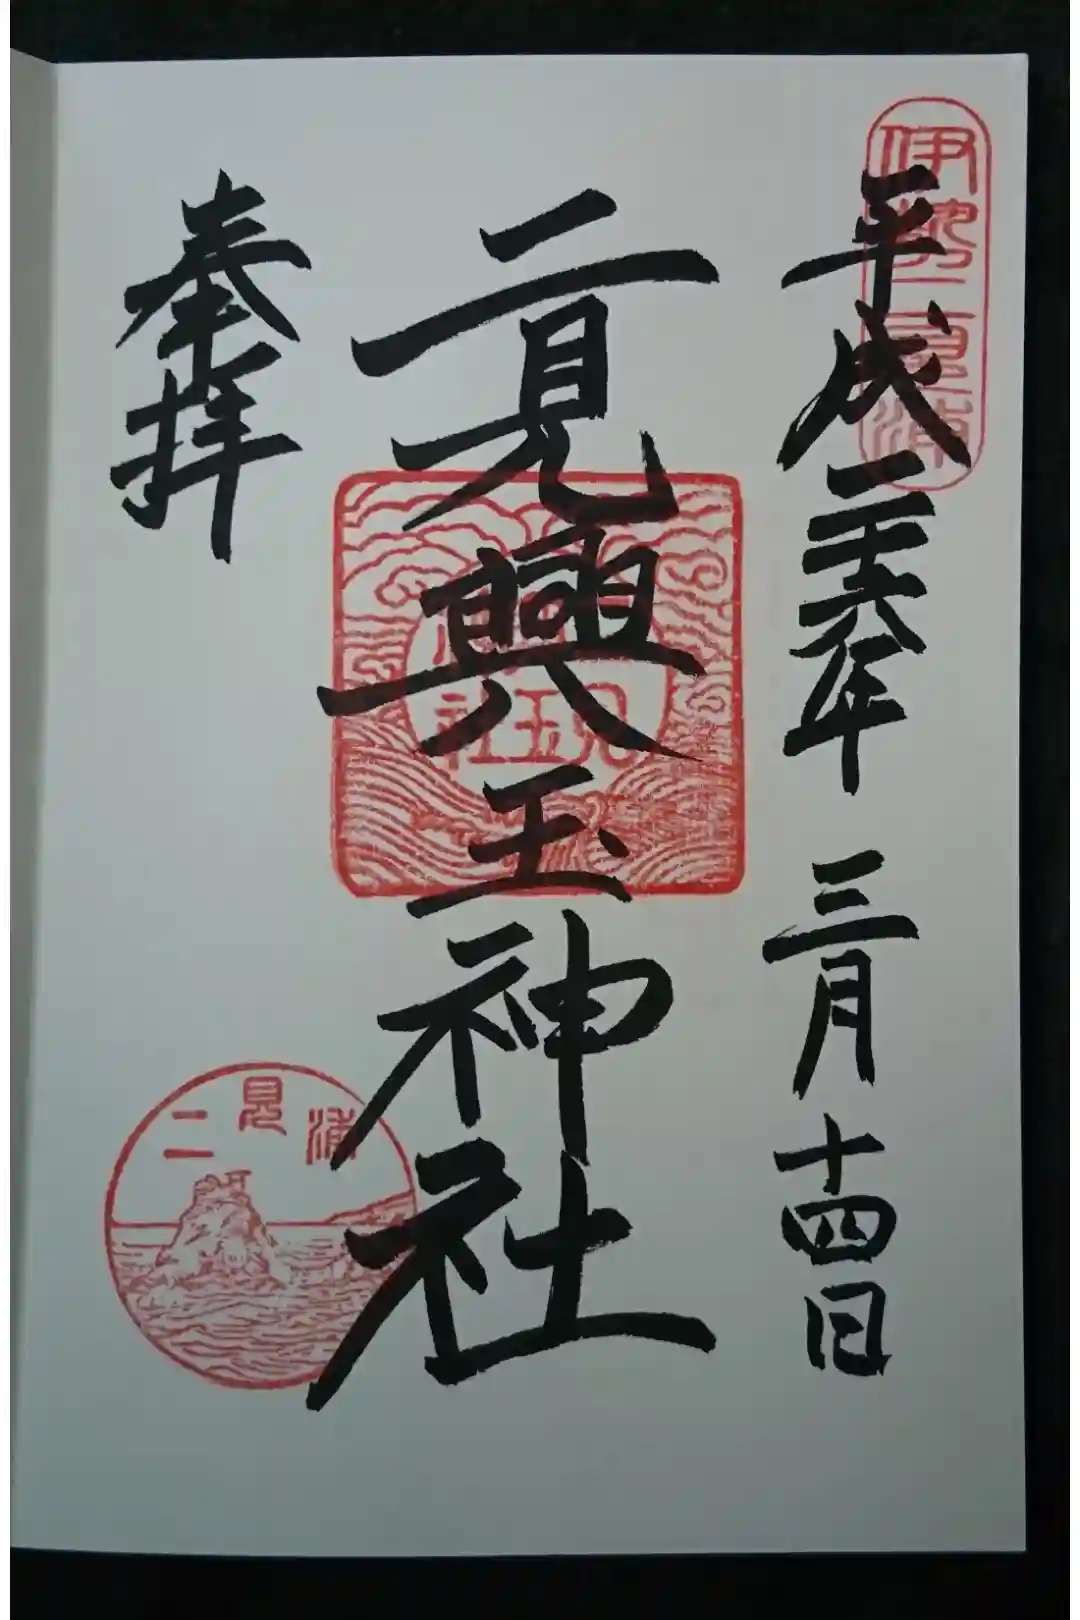 伊勢二見浦
平成二十六年 三月十四日
二見興玉神社
奉拝
二見浦